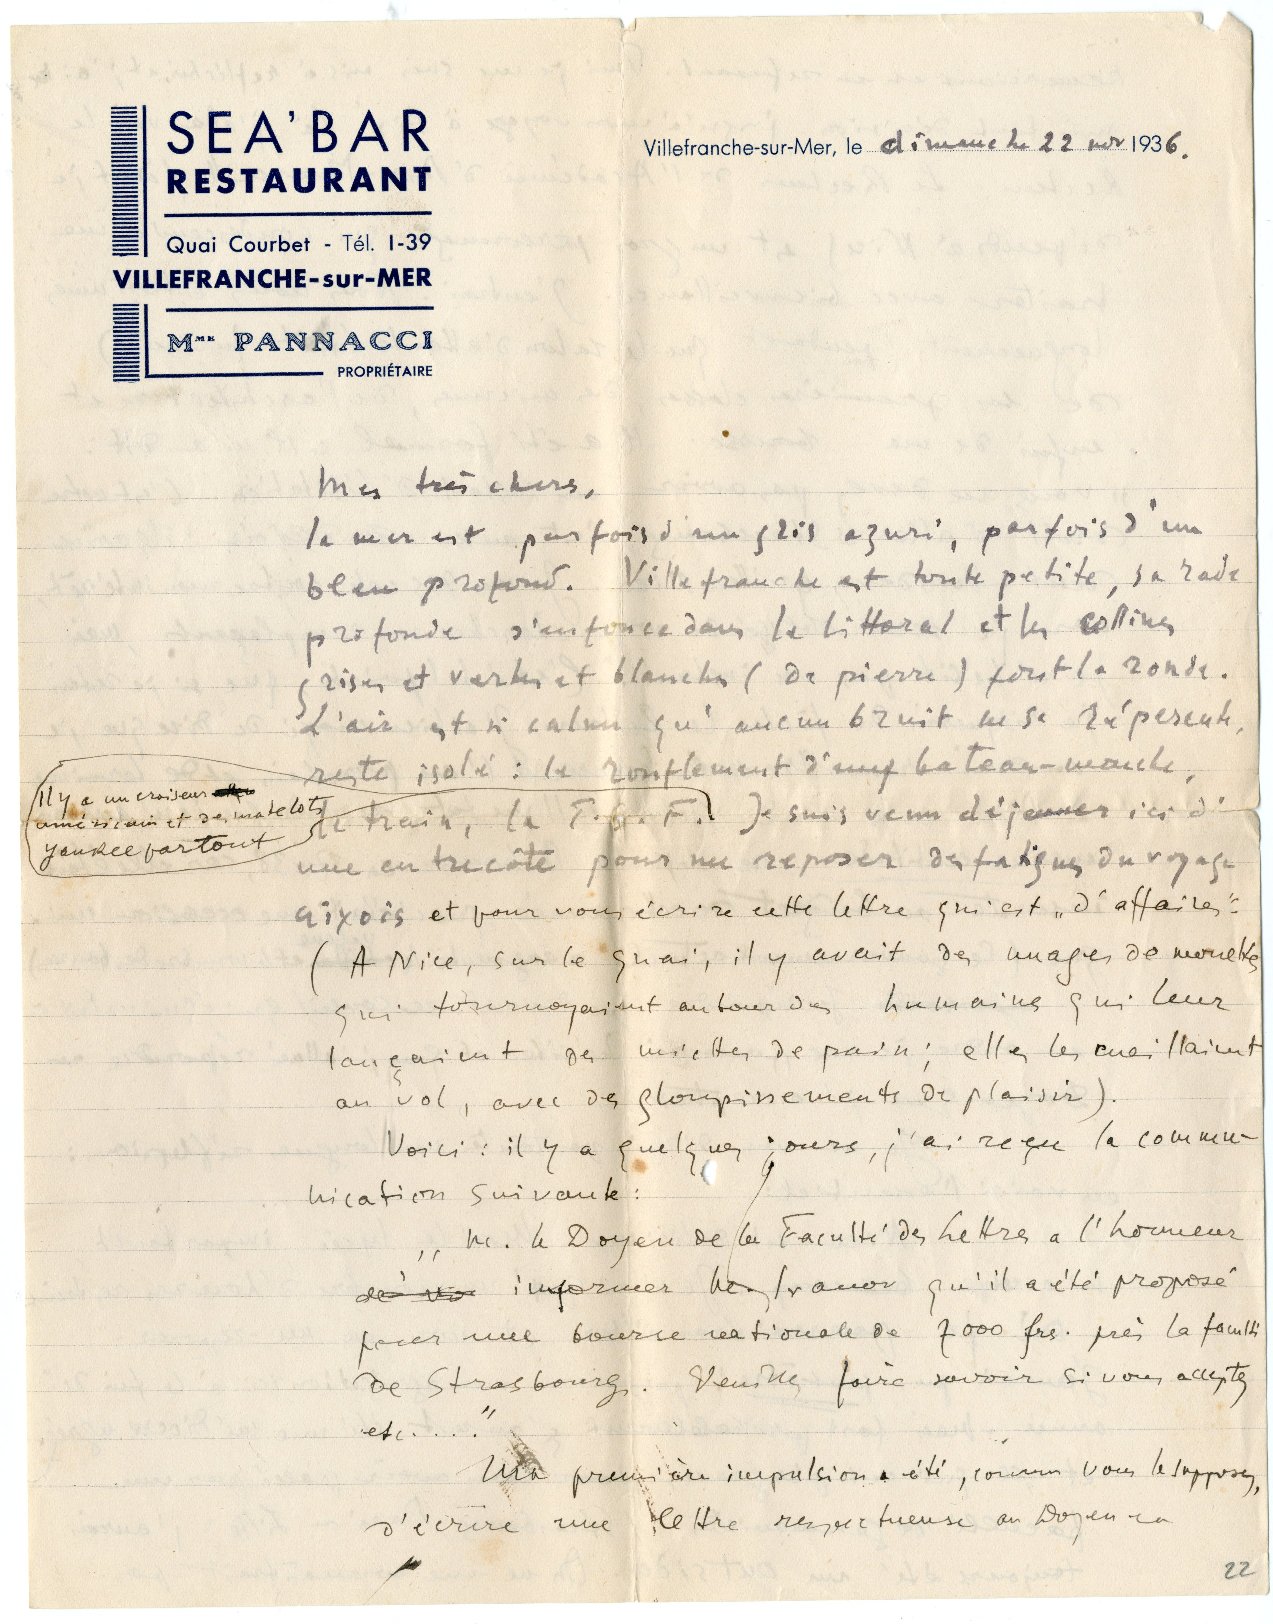 SEA'BAR
RESTAURANT
Quai Courbet - Tél. 1-39
VILLEFRANCHE-sur-MER
Mme PANNACCI
PROPRIÉTAIRE
Villefranche-sur-Mer, le dimanche 22 nov 1936.
Mes très chers,
la mer est parfois d'un gris azuri, parfois d'un
bleu profond. Villefranche est toute petite, sa rade
profonde s'enfonce dans le littoral et les collines
grises et vertes et blanches (de pierre) font la ronde.
L'air est si calme qu'aucun bruit ne se répercute,
reste isolé : le ronflement d'un bateau-mouche,
le train, la T.S.F. Je suis venu déjeuner ici d'
Il y a un croiseur
américain et des matelots
yankee partout
une entrecôte pour me reposer des fatigues du voyage
aixois et pour vous écrire cette lettre qui est „d'affaires":
(A Nice, sur le quai, il y avait des nuages de mouettes
qui tournoyaient autour des humains qui leur
lançaient des miettes de pain ; elles les cueillaient
au vol, avec des gloupissements de plaisir).
Voici : il y a quelques jours, j'ai reçu la commu-
nication suivante :
„ M. le Doyen de la Faculté des Lettres a l'honneur
de vo informer qu'il a été proposé
pour une bourse nationale de 7000 frs. près la faculté
de Strasbourg. Veuillez faire savoir si vous acceptez
etc...."
Ma première impulsion a été, comme vous le supposez,
d'écrire une lettre respectueuse au Doyen en
22